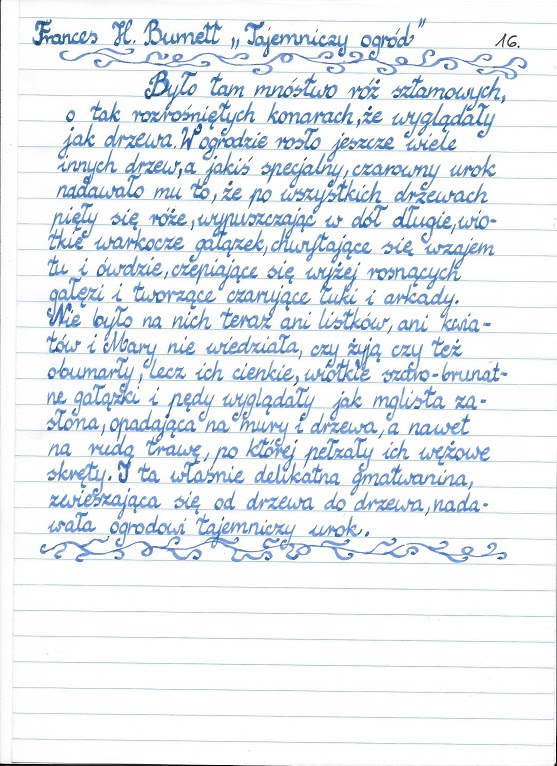 Frances H. Burnett „Tajemniczy ogród”
16.
Było tam mnóstwo róż sztamowych,
o tak rozrośniętych konarach, że wyglądały
jak drzewa. W ogrodzie rosło jeszcze wiele
innych drzew, a jakiś specjalny, czarowny urok
nadawało mu to, że po wszystkich drzewach
pięły się róże, wypuszczając w dół długie, wio-
tkie warkocze gałązek, chwytające się wzajem
tu i ówdzie, czepiające się wyżej rosnących
gałęzi i tworzące czarujące łuki i arkady.
Nie było na nich teraz ani listków, ani kwia-
tów i Mary nie wiedziała, czy żyją czy też
obumarły, lecz ich cienkie, wiotkie szaro-brunat-
ne gałązki i pędy wyglądały jak mglista za-
słona, opadająca na mury i drzewa, a nawet
na rudą trawę, po której pełzały ich wężowe
skręty. I ta właśnie delikatna gmatwanina,
zwieszająca się od drzewa do drzewa, nada-
wała ogrodowi tajemniczy urok.